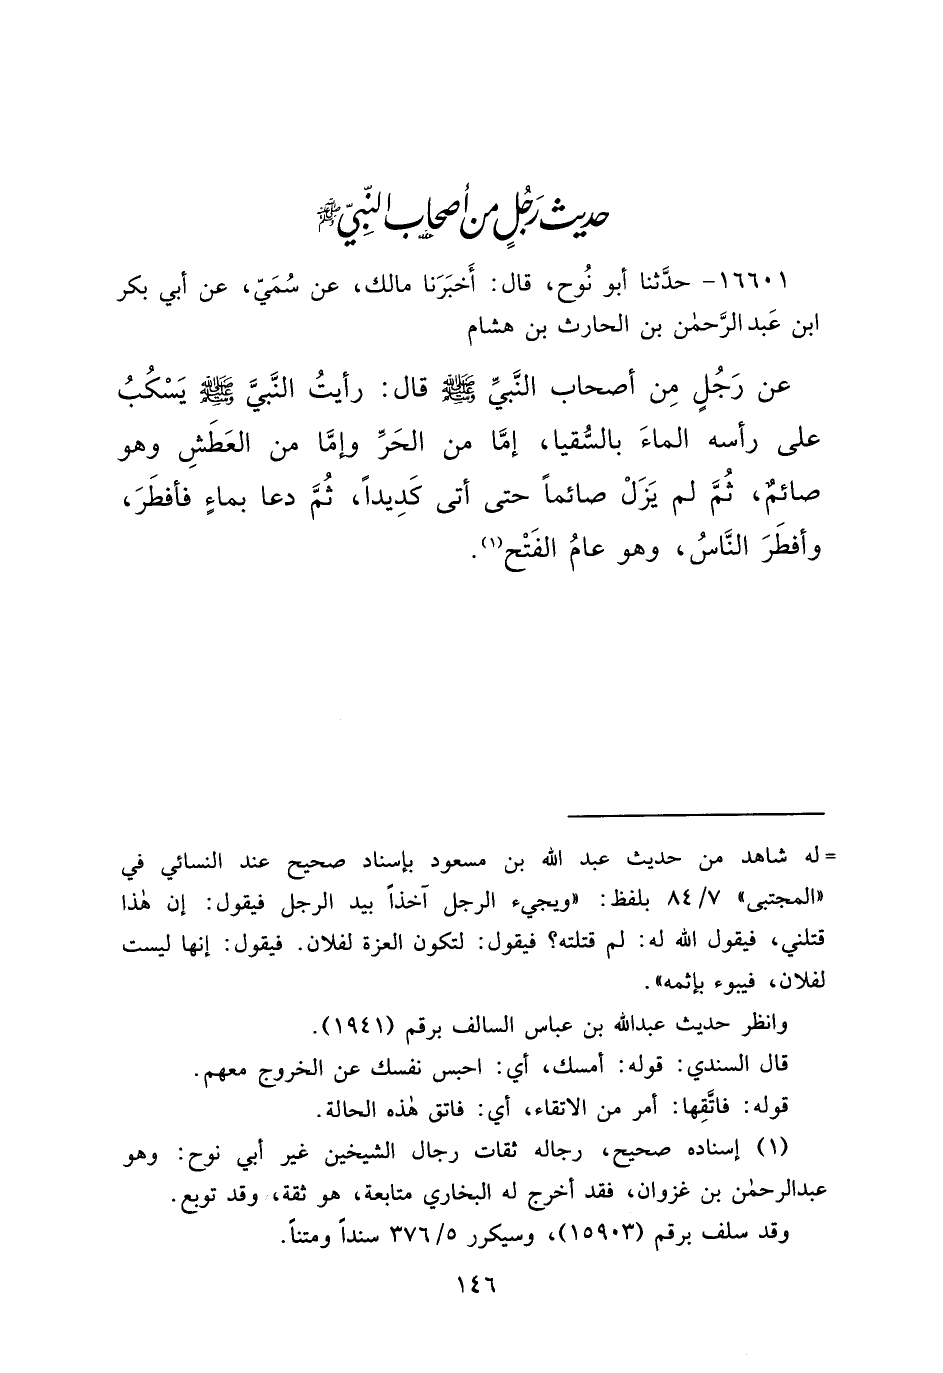 حديث رَجُلٍ من أصحاب النّبيّ ﷺ
١٦٦٠١- حدَّثنا أبو نُوح، قال: أَخبَرَنا مالك، عن سُمَيّ، عن أبي بكر
ابن عَبد الرَّحمٰن بن الحارث بن هشام
عن رَجُلٍ مِن أصحاب النَّبيِّ ﷺ قال: رأيتُ النَّبيَّ ﷺ يَسْكُبُ
على رأسه الماءَ بالسُّقيا، إمَّا من الحَرِّ وإمَّا من العَطَشِ وهو
صائمٌ، ثُمَّ لم يَزَلْ صائماً حتى أتى كَدِيداً، ثُمَّ دعا بماءٍ فأفطَرَ،
وأفطَرَ النَّاسُ، وهو عامُ الفَتْح(١).
=له شاهد من حديث عبد الله بن مسعود بإسناد صحيح عند النسائي في
«المجتبى» ٨٤/٧ بلفظ: «ويجيء الرجل آخذاً بيد الرجل فيقول: إن هٰذا
قتلني، فيقول الله له: لم قتلته؟ فيقول: لتكون العزة لفلان. فيقول: إنها ليست
لفلان، فيبوء بإثمه».
وانظر حديث عبدالله بن عباس السالف برقم (١٩٤١).
قال السندي: قوله: أمسك، أي: احبس نفسك عن الخروج معهم.
قوله: فاتَّقِها: أمر من الاتقاء، أي: فاتق هٰذه الحالة.
(١) إسناده صحيح، رجاله ثقات رجال الشيخين غير أبي نوح: وهو
عبدالرحمٰن بن غزوان، فقد أخرج له البخاري متابعة، هو ثقة، وقد توبع.
وقد سلف برقم (١٥٩٠٣)، وسيكرر ٣٧٦/٥ سنداً ومتناً.
١٤٦